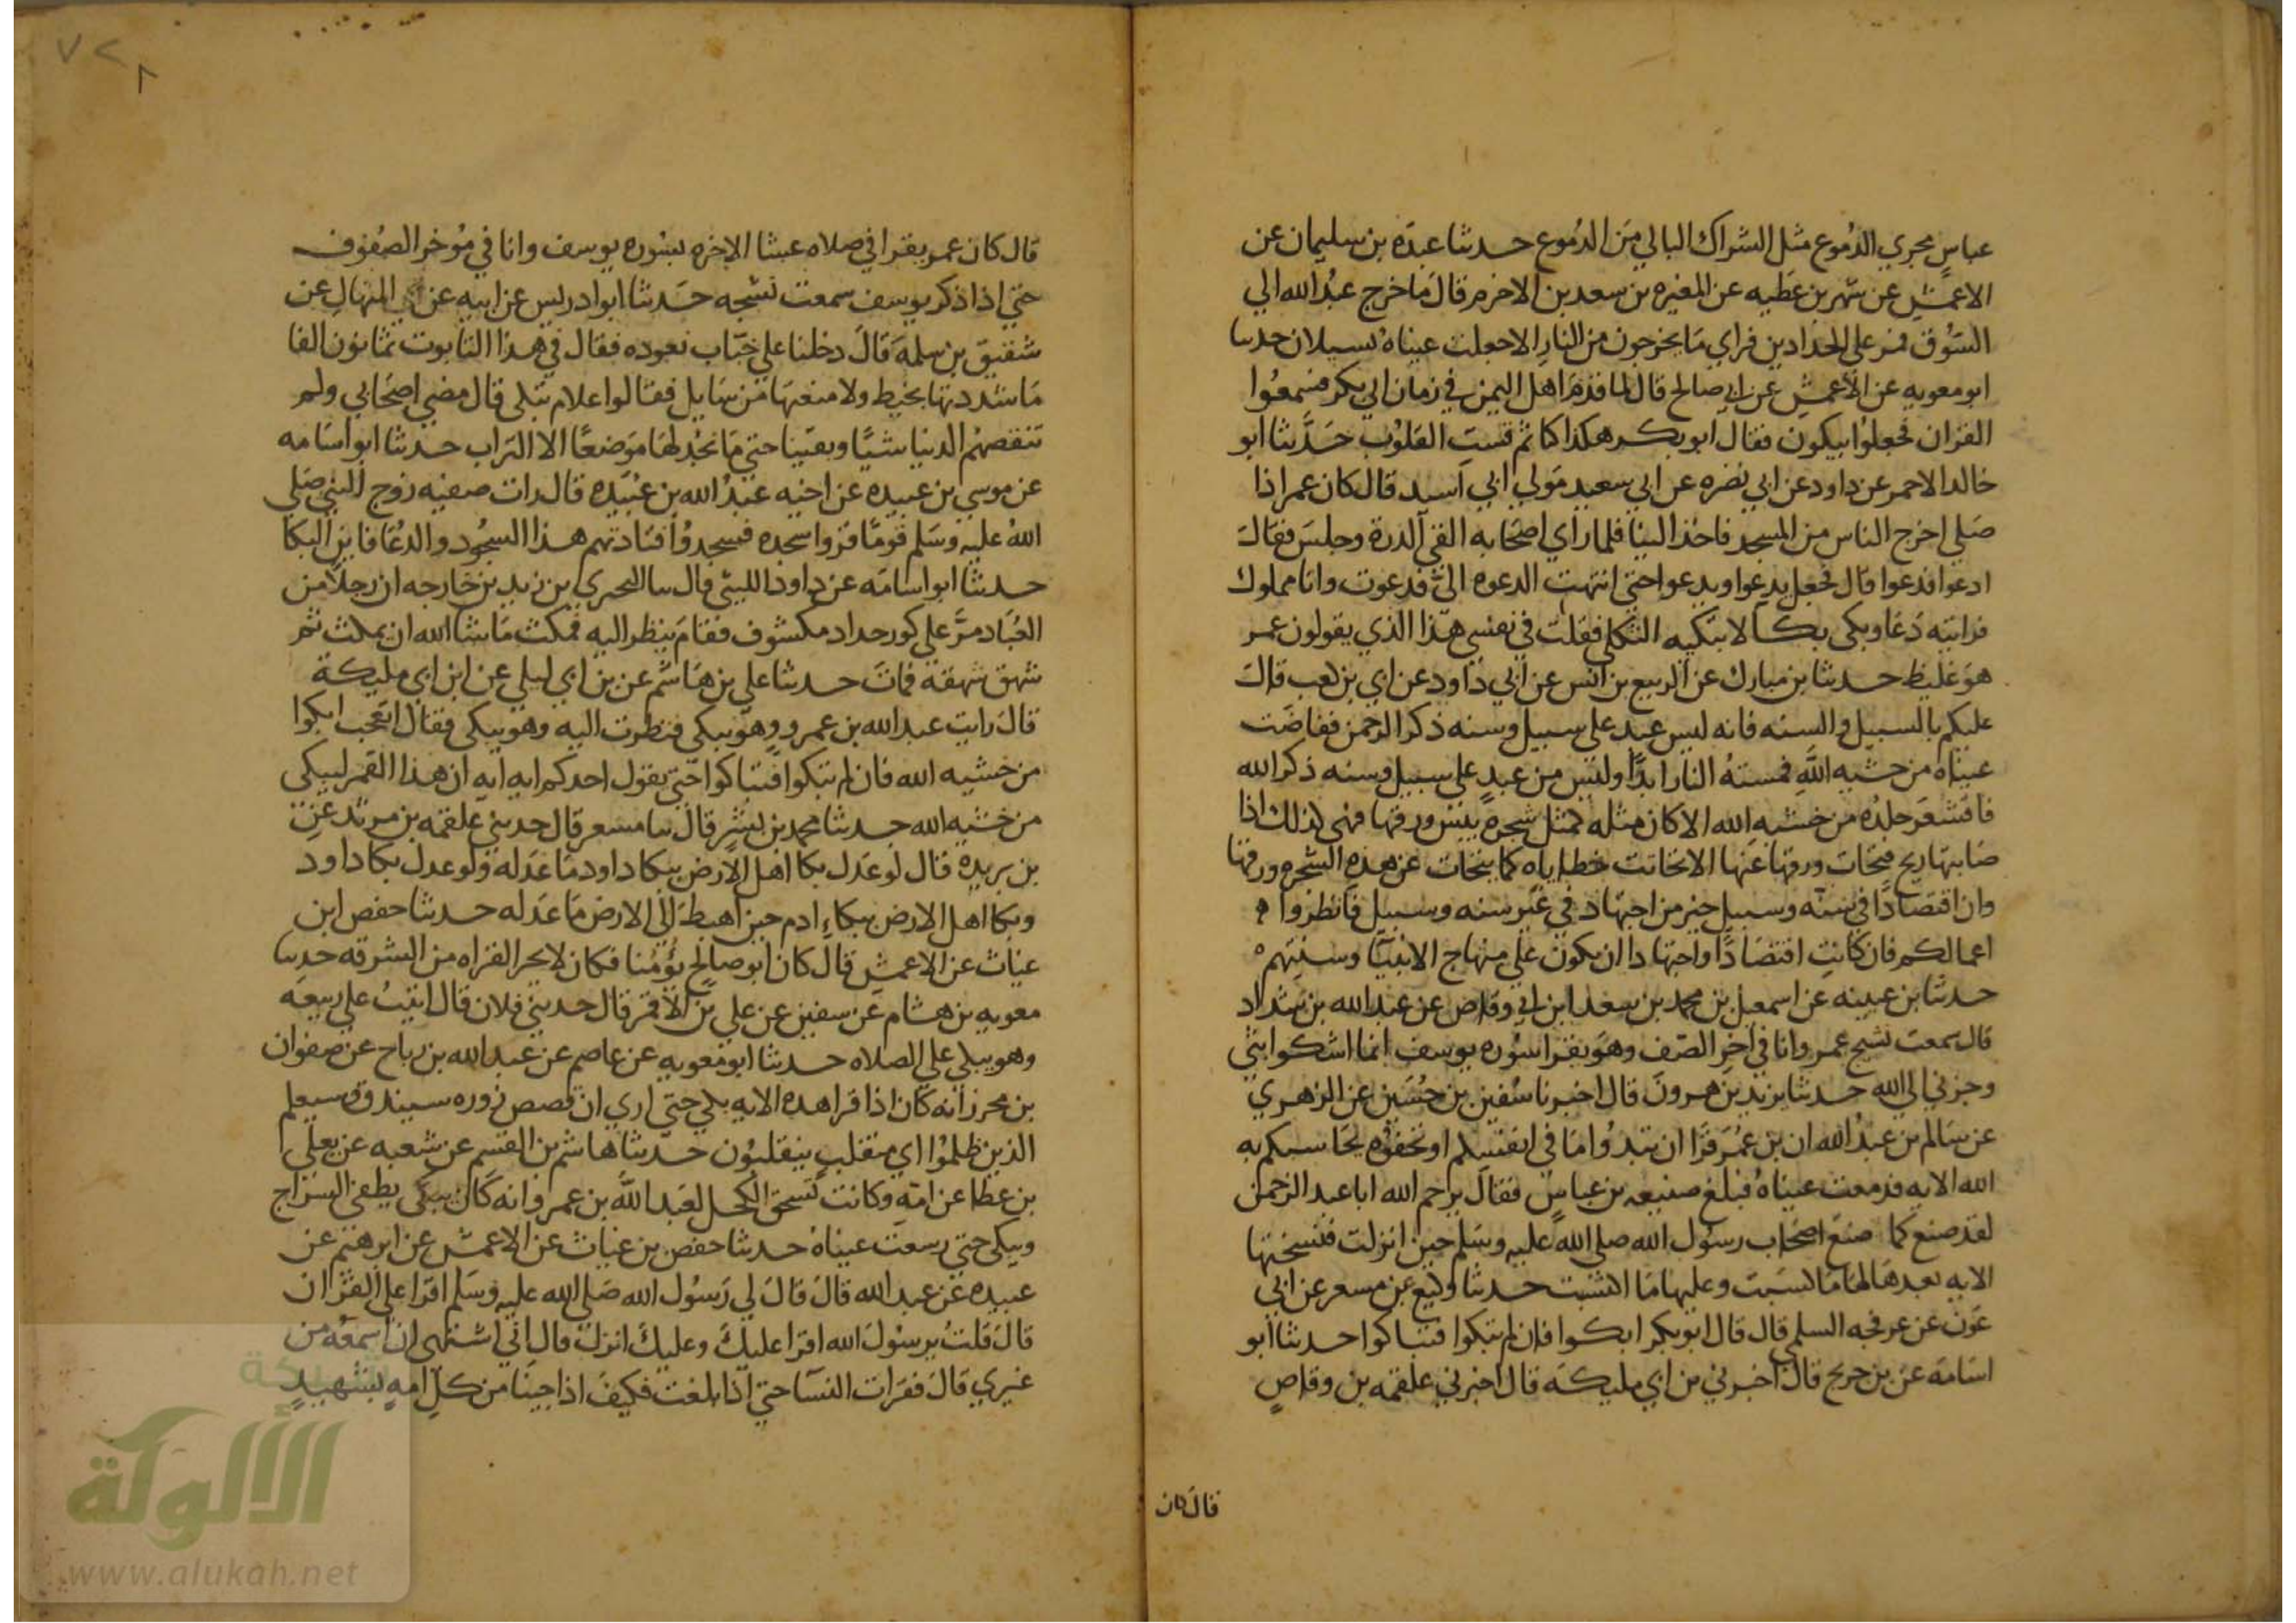 عباس مجري الدموع مثل الشراك البالي من الدموع حدثنا عبده بن سليمان عن
الاعمش عن شهر بن عطيه عن المغيره بن سعد بن الاخرم قال ما خرج عبد الله الي
السوق فمر على الحدادين فراي ما يخرجون من النار الا جعلت عيناه تسيلان حدثنا
ابو معويه عن الاعمش عن ابي صالح قال لما قدم اهل اليمن في زمان ابي بكر فسمعوا
القران فجعلوا يبكون فقال ابو بكر هكذا كنا ثم قست القلوب حدثنا ابو
خالد الاحمر عن داود عن ابي نضره عن ابي سعيد مولي ابي اسيد قال كان عمر اذا
صلي اخرج الناس من المسجد فاخذ الينا فلما راي اصحابه القي الدرة وجلس فقال
ادعوا فدعوا قال فجعل يدعوا ويدعوا حتي انتهت الدعوه الي فدعوت وانا مملوك
فرايته دعا وبكي بكا لا تبكيه الثكلي فقلت في نفسي هذا الذي يقولون عمر
هو غليظ حدثنا بن مبارك عن الربيع بن انس عن ابي داود عن ابي بن كعب قال
عليكم بالسبيل والسنه فانه ليس عبد على سبيل وسنه ذكر الرحمن ففاضت
عيناه من خشيه الله فمسته النار ابدا وليس من عبد على سبيل وسنه ذكر الله
فاقشعر جلده من خشيه الله الا كان مثله كمثل شجرة يبس ورقها فهي كذلك اذا
صابتها ريح فتحات ورقها عنها الا تحاتت خطاياه كما يتحات عن هذه الشجره ورقها
وان اقتصادا في سنه وسبيل خير من اجتهاد في غير سنه وسبيل فانظروا
اعمالكم فان كانت اقتصادا واجتهادا ان يكون على منهاج الانبيا وسنتهم
حدثنا بن عيينه عن اسمعيل بن محمد بن سعد ابن ابي وقاص عن عبد الله بن شداد
قال سمعت نشيج عمر وانا في اخر الصف وهو يقرا سوره يوسف انما اشكوا بثي
وحزني الي الله حدثنا يزيد بن هرون قال اخبرنا سفين بن حسين عن الزهري
عن سالم بن عبد الله ان بن عمر قرا ان تبدوا ما في انفسكم او تخفوه يحاسبكم به
الله الايه فدمعت عيناه فبلغ صنيعه بن عباس فقال يرحم الله ابا عبد الرحمن
لقد صنع كما صنع اصحاب رسول الله صلى الله عليه وسلم حين انزلت فنسختها
الايه بعدها لها ما كسبت وعليها ما اكتسبت حدثنا وكيع عن مسعر عن ابي
عون عن عرفجه السلمي قال قال ابو بكر ابكوا فان لم تبكوا فتباكوا حدثنا ابو
اسامه عن بن جريج قال اخبرني بن ابي مليكه قال اخبرني علقمه بن وقاص
قال كان
قال كان عمر يقرا في صلاه عشا الاخره بسوره يوسف وانا في موخر الصفوف
حتي اذا ذكر يوسف سمعت نشيجه حدثنا ابو ادريس عن ابيه عن المنهال عن
شقيق بن سلمه قال دخلنا علي خباب نعوده فقال في هذا التابوت ثمانون الفا
ما شددتها بخيط ولا منعتها من سايل فقالوا علام تبكي قال مضي اصحابي ولم
تنقصهم الدنيا شيا وبقينا حتي ما نجد لها موضعا الا التراب حدثنا ابو اسامه
عن موسي بن عبيده عن اخيه عبد الله بن عبيده قال رات صفيه زوج النبي صلي
الله عليه وسلم قوما قروا سجده فسجدوا فنادتهم هذا السجود والدعا فاين البكا
حدثنا ابو اسامه عن داود الليثي قال سا البحري بن زيد بن خارجه ان رجلا من
العباد مر علي كور حداد مكشوف فقام ينظر اليه فمكث ما شا الله ان يمكث ثم
شهق شهقه فمات حدثنا علي بن هاشم عن بن ابي ليلي عن ابن ابي مليكة
قال رايت عبد الله بن عمرو وهو يبكي فنظرت اليه وهو يبكي فقال اتعجب ابكوا
من خشيه الله فان لم تبكوا فتباكوا حتي يقول احدكم ايه ايه ان هذا القمر ليبكي
من خشيه الله حدثنا محمد بن بشر قال سا مسعر قال حدثني علقمه بن مرثد عن
بن بريدة قال لو عدل بكا اهل الارض ببكا داود ما عدله ولو عدل بكا داود
وبكا اهل الارض ببكاء ادم حين اهبط الي الارض ما عدله حدثنا حفص ابن
غياث عن الاعمش قال كان ابو صالح يؤمنا فكان لا يجيز القراه من الرقه حدثنا
معويه بن هشام عن سفين عن علي بن الاقمر قال حدثني فلان قال اتيت علي ربيعه
وهو يبكي علي الصلاه حدثنا ابو معويه عن عاصم عن عبد الله بن رباح عن صفوان
بن محرز انه كان اذا قرا هذه الايه بكي حتي اري ان قصص زوره سيندق وسيعلم
الذين ظلموا اي منقلب ينقلبون حدثنا هاشم بن القسم عن شعبه عن يعلي
بن عطا عن امه وكانت تسحق الكحل لعبد الله بن عمرو انه كان يبكي يطفي السراج
ويبكي حتي رسعت عيناه حدثنا حفص بن غياث عن الاعمش عن ابرهيم عن
عبيده عن عبد الله قال قال لي رسول الله صلي الله عليه وسلم اقرا علي القران
قال قلت يرسول الله اقرا عليك وعليك انزل قال اني اشتهي ان اسمعه من
غيري قال فقرات النسا حتي اذا بلغت فكيف اذا جينا من كل امه بشهيد
شبكة
الألوكة
www.alukah.net